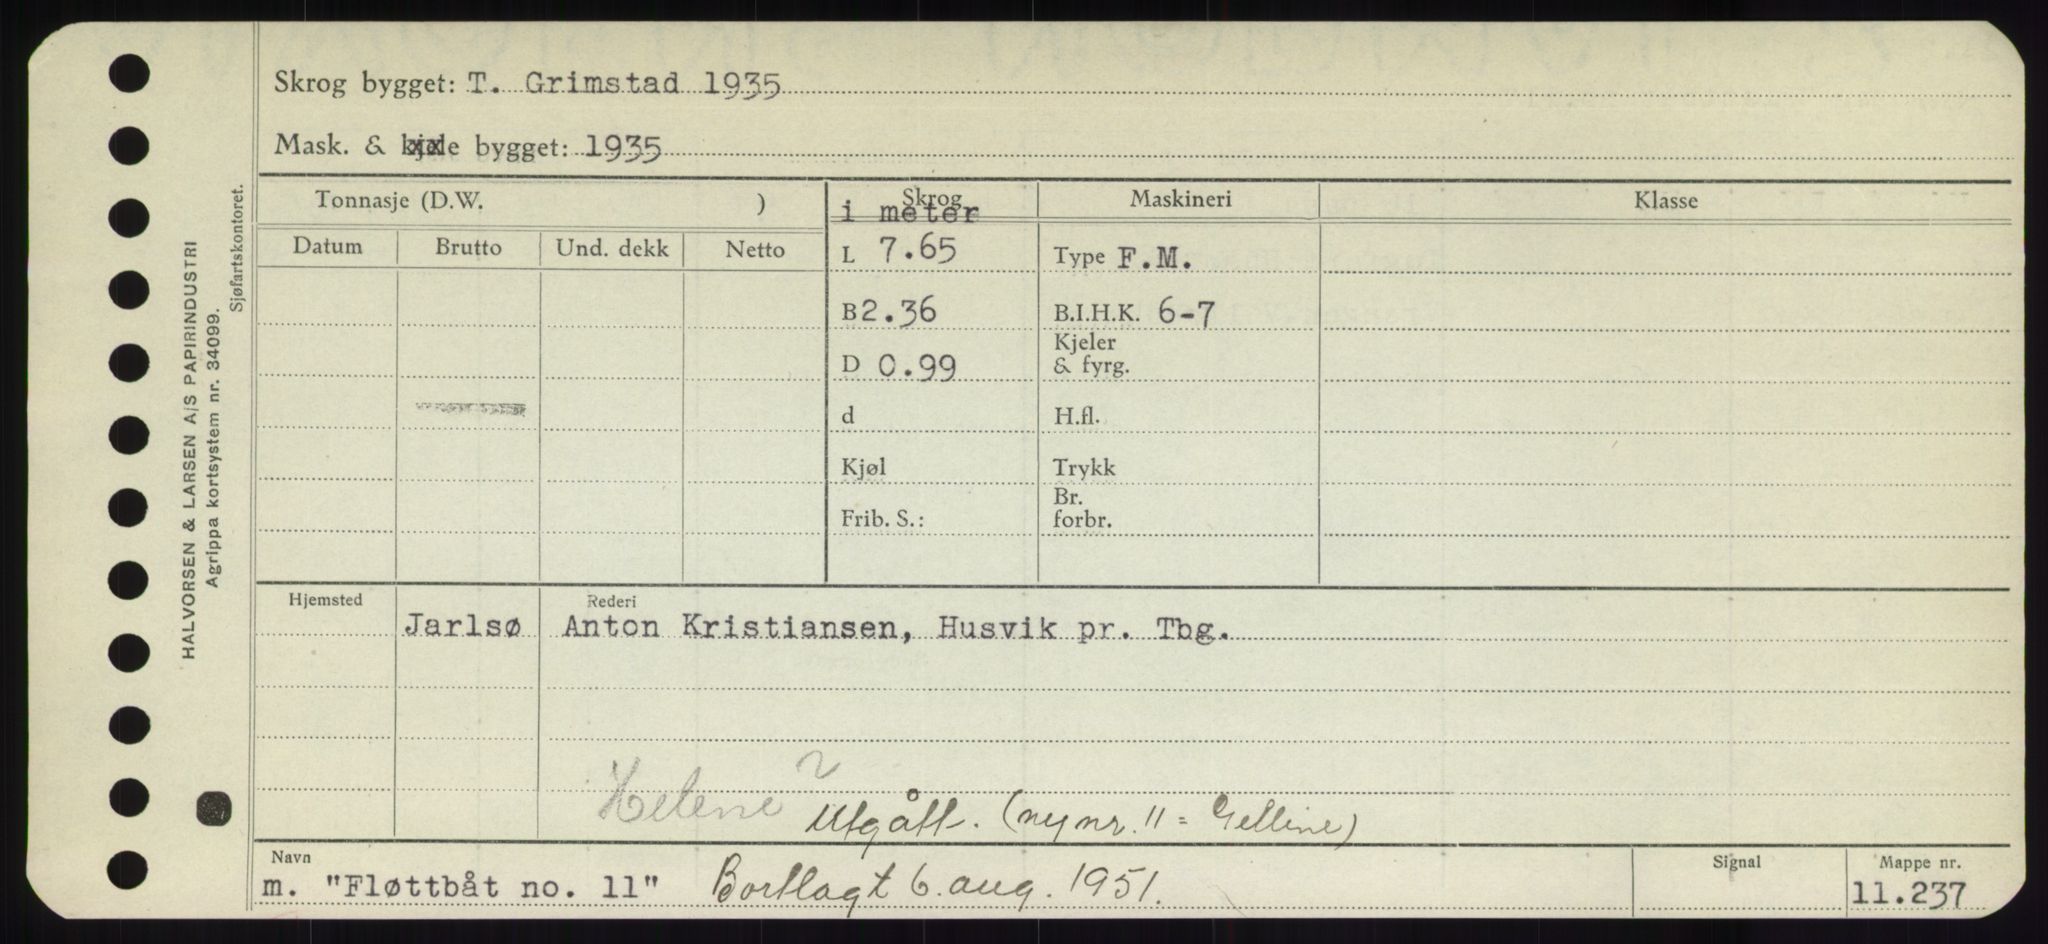 Skrog bygget: T. Grimstad 1935
Mask. & kjele bygget: 1935
Tonnasje (D.W. )
Skrog
i meter
Maskineri
Klasse
Datum Brutto Und. dekk Netto
L 7.65
Type F.M.
B 2.36
B.I.H.K. 6-7
D 0.99
Kjeler
& fyrg.
d
H.fl.
Kjøl
Trykk
Frib. S.:
Br.
forbr.
Hjemsted
Rederi
Jarlsø Anton Kristiansen, Husvik pr. Tbg.
Helene ?
Utgått. (ny nr. 11 = Gelline)
Navn
Signal
Mappe nr.
m. "Fløttbåt no. 11" Bortlagt 6. aug. 1951.
11.237
HALVORSEN & LARSEN A/S PAPIRINDUSTRI
Agrippa kortsystem nr. 34099.
Sjøfartskontoret.